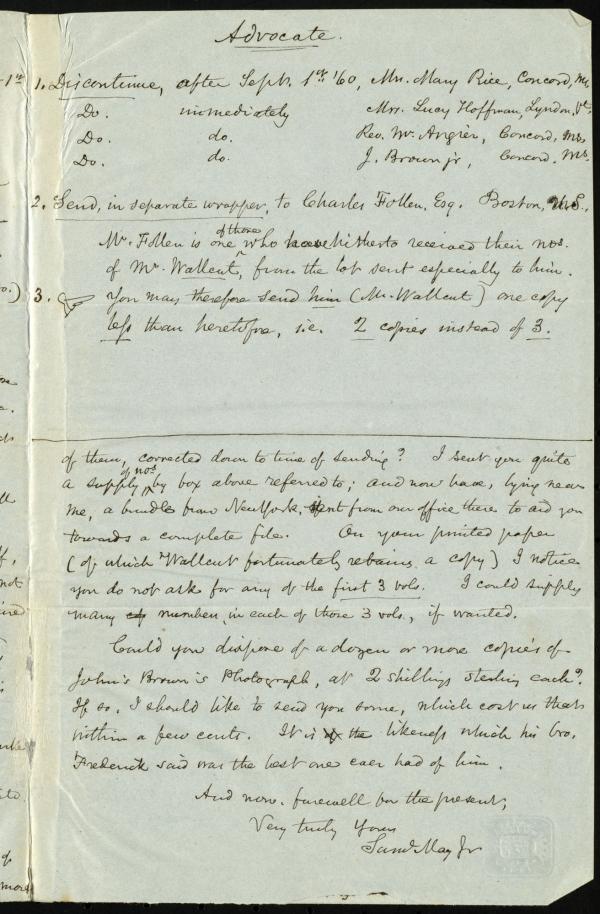 Advocate.
1. Discontinue, after Sept. 1st '60, Mrs. Mary Rice, Concord, Ms.
Do. immediately Mrs. Lucy Hoffman, Lyndon, Vt.
Do. do. Rev. Mr. Angier, Concord, Ms.
Do. do. J. Brown jr, Concord, Ms.
2. Send, in separate wrapper, to Charles Follen, Esq. Boston, U.S.,
Mr. Follen is one of those who have hitherto received their nos.
of Mr. Wallcut, from the lot sent especially to him.
3. You may therefore send him (Mr. Wallcut) one copy
less than heretofore, i.e. 2 copies instead of 3.
of them, corrected down to time of sending? I sent you quite
a supply of nos. by box above referred to; and now have, lying near
me, a bundle from New York, sent from our office there to aid you
towards a complete file. On your printed paper
(of which Wallcut fortunately retains a copy) I notice
you do not ask for any of the first 3 vols. I could supply
many numbers in each of those 3 vols., if wanted.
Could you dispose of a dozen or more copies of
John Brown's Photograph, at 2 shillings sterling each?
If so, I should like to send you some, which cost us that
within a few cents. It is the likeness which his bro.
Frederick said was the best one ever had of him.
And now, farewell for the present,
Very truly Yours
Saml. May Jr